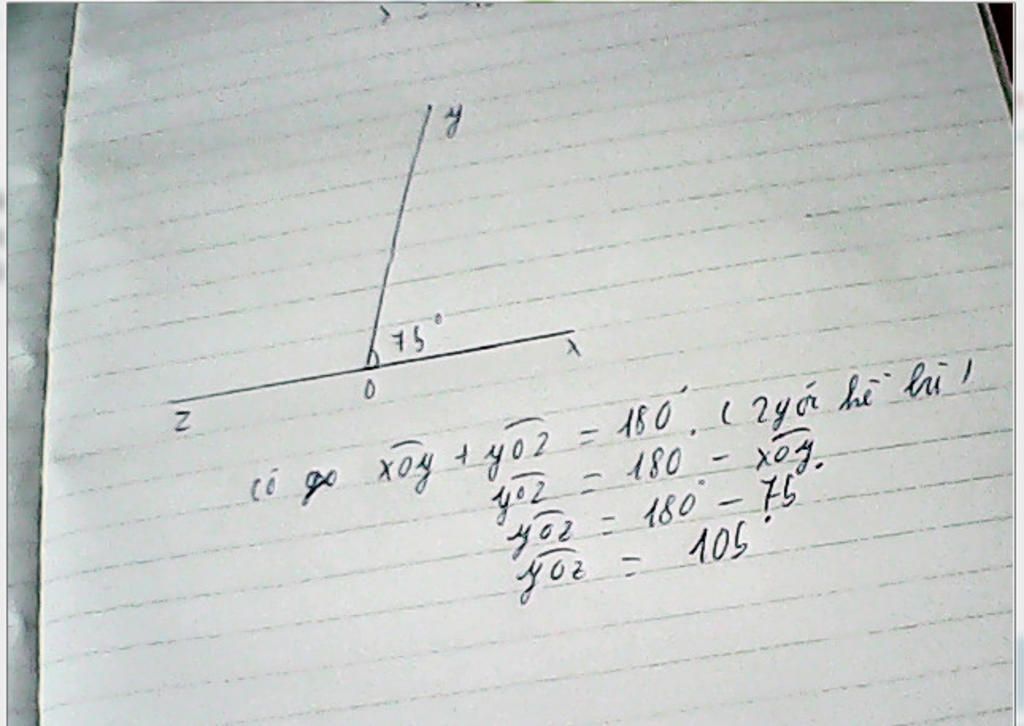 y
75°
x
O
z
có xOy + yOz = 180°. ( 2 góc kề bù )
yOz = 180 - xOy.
yOz = 180° - 75
yOz = 105